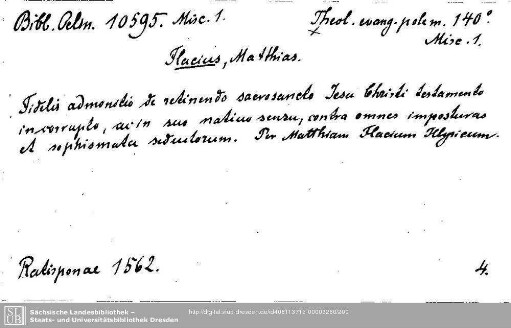 Bibl. Oelm. 10595. Misc. 1.
Theol. evang. polem. 140°
Misc. 1.
Flacius, Matthias.
Fidelis admonitio de retinendo sacrosancto Jesu Christi testamento
incorrupto, ac in suo nativo sensu, contra omnes imposturas
et sophismata seductorum. Per Matthiam Flacium Illyricum.
Ratisponae 1562.
4.
SLUB
Sächsische Landesbibliothek –
Staats- und Universitätsbibliothek Dresden